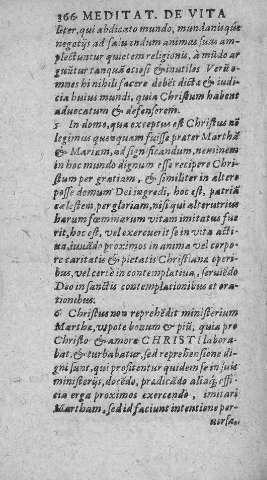 366 MEDITAT. DE VITA
liter, qui abdicato mundo, mundanisque
negotijs ad saluandum animas suas am-
plectuntur quietem religionis, à mũdo ar
guũtur tanquã ociosi & inutiles. Verũ o-
mnes hi nihil facere debẽt dicta & iudi-
cia huius mundi, quia Christum habent
aduocatum & defensorem.
In domo, qua exceptus est Christus nõ
legimus quenquam fuisse præter Marthã
& Mariam, ad significandum, neminem
in hoc mundo dignum esse recipere Chri-
stum per gratiam, & similiter in altero
posse domum Dei ingredi, hoc est, patriã
cælestem per gloriam, nisi qui alterutrius
harum fœminarum vitam imitatus fue
rit, hoc est, vel exercuerit se in vita acti-
ua, iuuãdo proximos in anima vel corpo-
re caritatis & pietatis Christianæ operi-
bus, vel certè in contemplatiua, seruiẽdo
Deo in sanctis contemplationibus et ora-
tionibus.
6 Christus non reprehẽdit ministerium
Marthæ, vtpote bonum & piũ, quia pro
Christo & amore CHRISTI labora-
bat, & turbabatur, sed reprehensione di-
gni sunt, qui profitentur quidem se in suis
ministerijs, docẽdo, prædicãdo aliaq; offi-
cia erga proximos exercendo, imitari
Martham, sed id faciunt intentione per-
uersa.